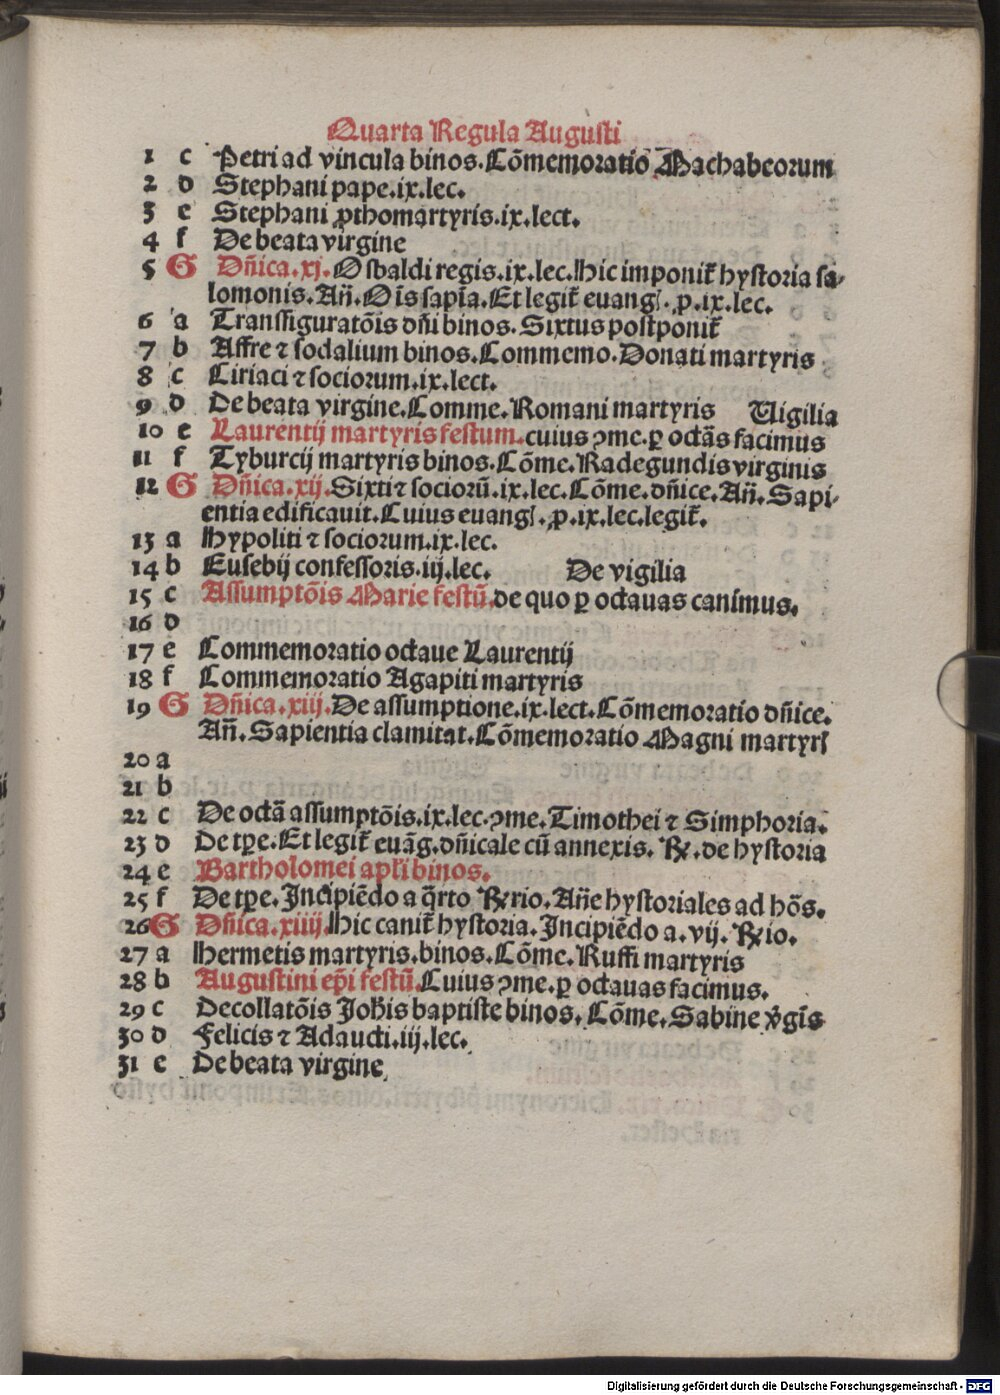 Quarta Regula Augusti
1 c Petri ad vincula binos. Cōmemoratio Machabeorum
2 d Stephani pape.ix.lec.
3 e Stephani ꝓthomartyris.ix.lect.
4 f De beata virgine
5 G Dñica.xj. Osbaldi regis.ix.lec. Hic imponit᷑ hystoria sa-
lomonis. Añ. Oīs sapīa. Et legit᷑ euangł. ꝓ.ix.lec.
6 a Transfiguratōis dñi binos. Sixtus postponit᷑
7 b Affre ⁊ sodalium binos. Commemo. Donati martyris
8 c Ciriaci ⁊ sociorum.ix.lect.
9 d De beata virgine. Comme. Romani martyris Uigilia
10 e Laurentij martyris festum. cuius ꝯme. ꝑ octās facimus
11 f Tyburcij martyris binos. Cōme. Radegundis virginis
12 G Dñica.xij. Sixti ⁊ sociorū.ix.lec. Cōme. dñice. Añ. Sapi-
entia edificauit. Cuius euangł. ꝓ.ix.lec. legit᷑.
13 a Hypoliti ⁊ sociorum.ix.lec.
14 b Eusebij confessoris.iij.lec. De vigilia
15 c Assumptōis Marie festū. de quo ꝑ octauas canimus.
16 d
17 e Commemoratio octaue Laurentij
18 f Commemoratio Agapiti martyris
19 G Dñica.xiij. De assumptione.ix.lect. Cōmemoratio dñice.
Añ. Sapientia clamitat. Cōmemoratio Magni martyrꝭ
20 a
21 b
22 c De octā assumptōis.ix.lec. ꝯme. Timothei ⁊ Simphoria.
23 d De tꝑe. Et legit᷑ euāg. dñicale cū annexis. ℞. de hystoria
24 e Bartholomei apłi binos.
25 f De tꝑe. Incipiēdo a q̄rto ℞rio. Añe hystoriales ad hōs.
26 G Dñica.xiiij. Hic canit᷑ hystoria. Incipiēdo a.vij. ℞io.
27 a Hermetis martyris. binos. Cōme. Ruffi martyris
28 b Augustini ep̄i festū. Cuius ꝯme. ꝑ octauas facimus.
29 c Decollatōis Joħis baptiste binos. Cōme. Sabine v̓gīs
30 d Felicis ⁊ Adaucti.iij.lec.
31 e De beata virgine.
Digitalisierung gefördert durch die Deutsche Forschungsgemeinschaft - DFG